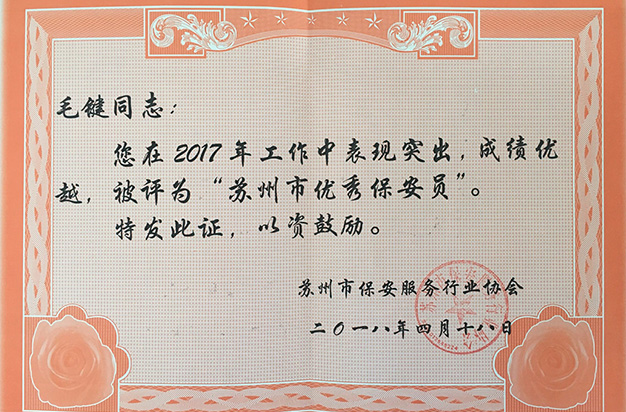 毛键同志：
您在2017年工作中表现突出，成绩优
越，被评为“苏州市优秀保安员”。
特发此证，以资鼓励。
苏州市保安服务行业协会
二〇一八年四月十八日